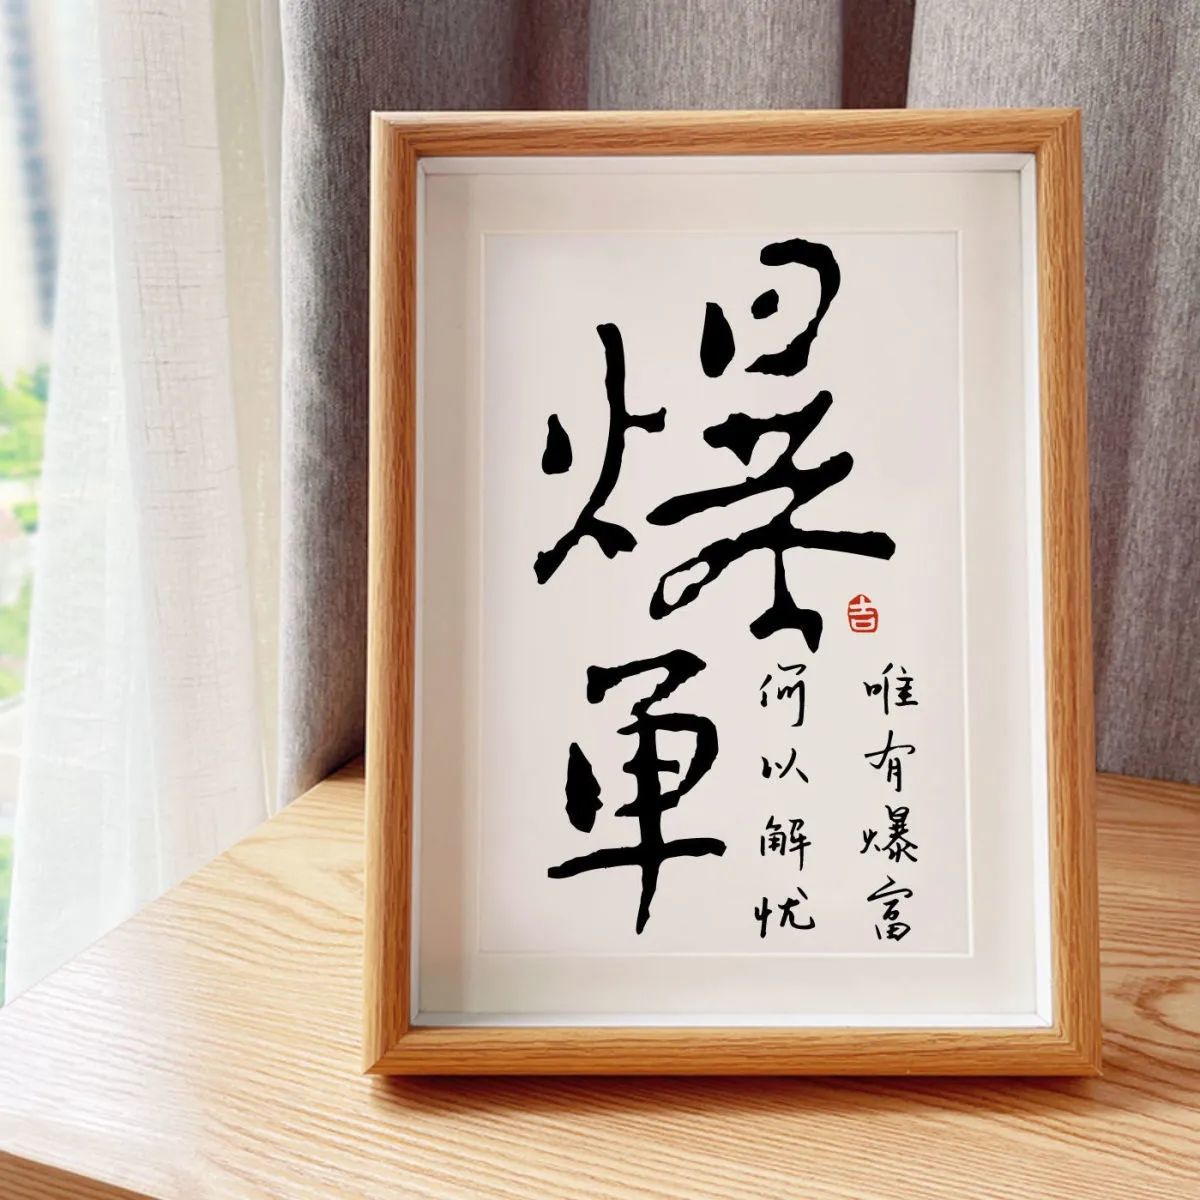 爆单
吉
何以解忧
唯有爆富